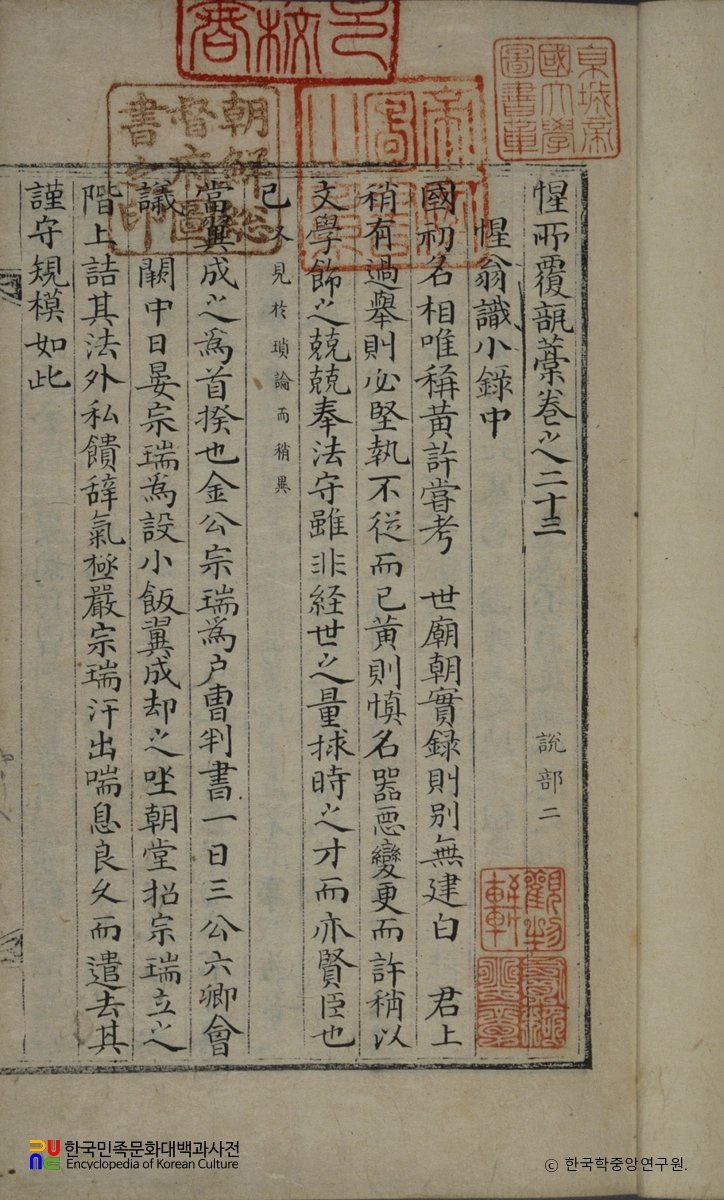 惺所覆瓿藁卷之二十三 說部二
惺翁識小錄中
國初名相唯稱黃許嘗考 世廟朝實録則别無建白 君上
稍有過擧則必堅執不從而已黃則慎名器惡變更而許稍以
文學飾之兢兢奉法守雖非経世之量捄時之才而亦賢臣也
已
令見於瑣論而稍異
當翼成之爲首揆也金公宗瑞爲户曺判書一日三公六卿會
議 闕中日晏宗瑞爲設小飯翼成却之坐朝堂招宗瑞立之
階上詰其法外私饋辞氣極嚴宗瑞汗出喘息良久而遣去其
謹守規模如此
京城帝國大學圖書章
朝鮮総督府圖書之印
한국민족문화대백과사전
Encyclopedia of Korean Culture
ⓒ 한국학중앙연구원.